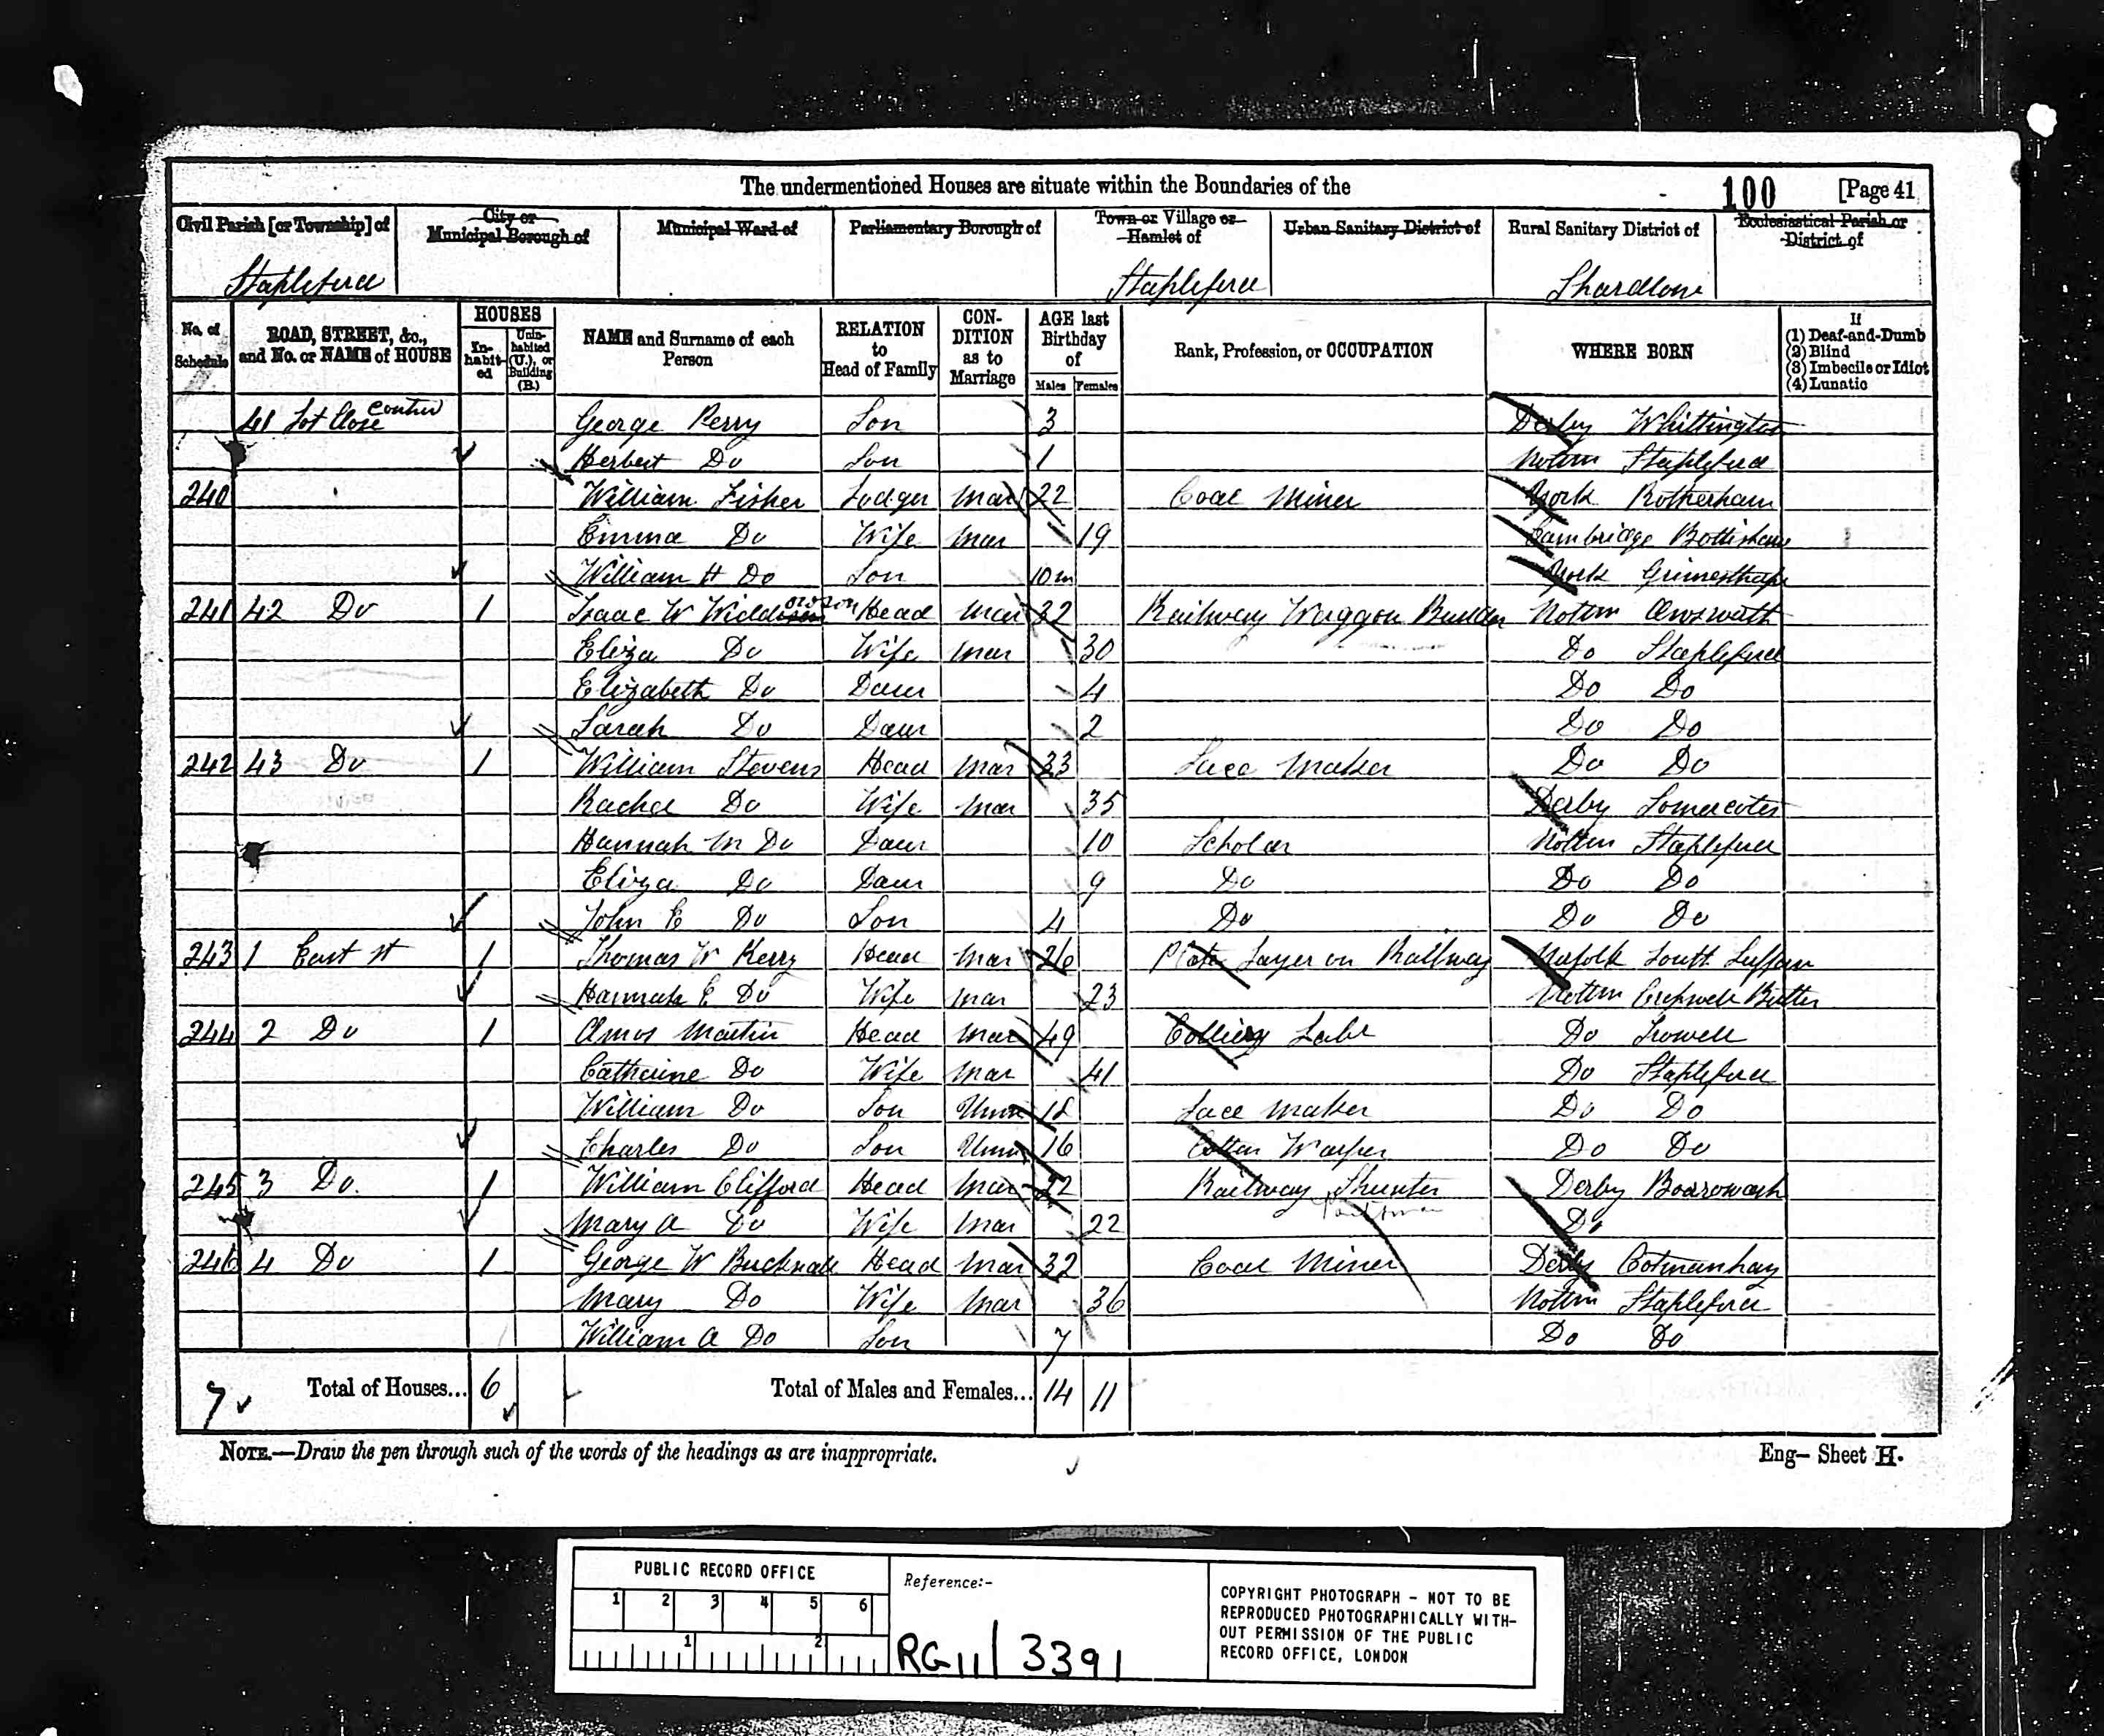 The undermentioned Houses are situate within the Boundaries of the 100 [Page 41
Civil Parish [or Township] of City or Municipal Borough of Municipal Ward of Parliamentary Borough of Town or Village or Hamlet of Urban Sanitary District of Rural Sanitary District of Ecclesiastical Parish or District of
Stapleford Stapleford Shardlow
No. of Schedule ROAD, STREET, &c., and No. or NAME of HOUSE HOUSES In-habit-ed Unin-habited (U.), or Building (B.) NAME and Surname of each Person RELATION to Head of Family CON-DITION as to Marriage AGE last Birthday of Males Females Rank, Profession, or OCCUPATION WHERE BORN If (1) Deaf-and-Dumb (2) Blind (3) Imbecile or Idiot (4) Lunatic
41 Lot Close George Perry Son 3 Derby Whittington
Herbert Do Son 1 Nottm Stapleford
240 William Fisher Lodger Mar 22 Coal Miner York Rotherham
Emma Do Wife Mar 19 Cambridge Bottisham
William H Do Son 10m York Grimesthope
241 42 Do 1 Isaac W Widdowson Head Mar 32 Railway Waggon Builder Nottm Awsworth
Eliza Do Wife Mar 30 Do Stapleford
Elizabeth Do Daur 4 Do Do
Sarah Do Daur 2 Do Do
242 43 Do 1 William Stevens Head Mar 33 Lace Maker Do Do
Rachel Do Wife Mar 35 Derby Somercotes
Hannah M Do Daur 10 Scholar Nottm Stapleford
Eliza Do Daur 9 Do Do Do
John E Do Son 4 Do Do Do
243 1 East St 1 Thomas W Kerry Head Mar 26 Plate Layer on Railway Norfolk South
Hannah E Do Wife Mar 23 Nottm Cropwell Butler
244 2 Do 1 Amos Martin Head Mar 49 Colliery Labr Do Trowell
Catherine Do Wife Mar 41 Do Stapleford
William Do Son Unm 18 Lace Maker Do Do
Charles Do Son Unm 16 Cotton Warper Do Do
245 3 Do. 1 William Clifford Head Mar Railway Shunter Derby Borrowash
Mary A Do Wife Mar 22 Do
246 4 Do 1 George W Bucknall Head Mar 32 Coal Miner Derby Cotmanhay
Mary Do Wife Mar 36 Nottm Stapleford
William A Do Son 7 Do Do
7 Total of Houses... 6 Total of Males and Females... 14 11
NOTE.—Draw the pen through such of the words of the headings as are inappropriate. Eng— Sheet H.
PUBLIC RECORD OFFICE
1 2 3 4 5 6
1 2
Reference:-
RG 11 / 3391
COPYRIGHT PHOTOGRAPH - NOT TO BE
REPRODUCED PHOTOGRAPHICALLY WITH-
OUT PERMISSION OF THE PUBLIC
RECORD OFFICE, LONDON